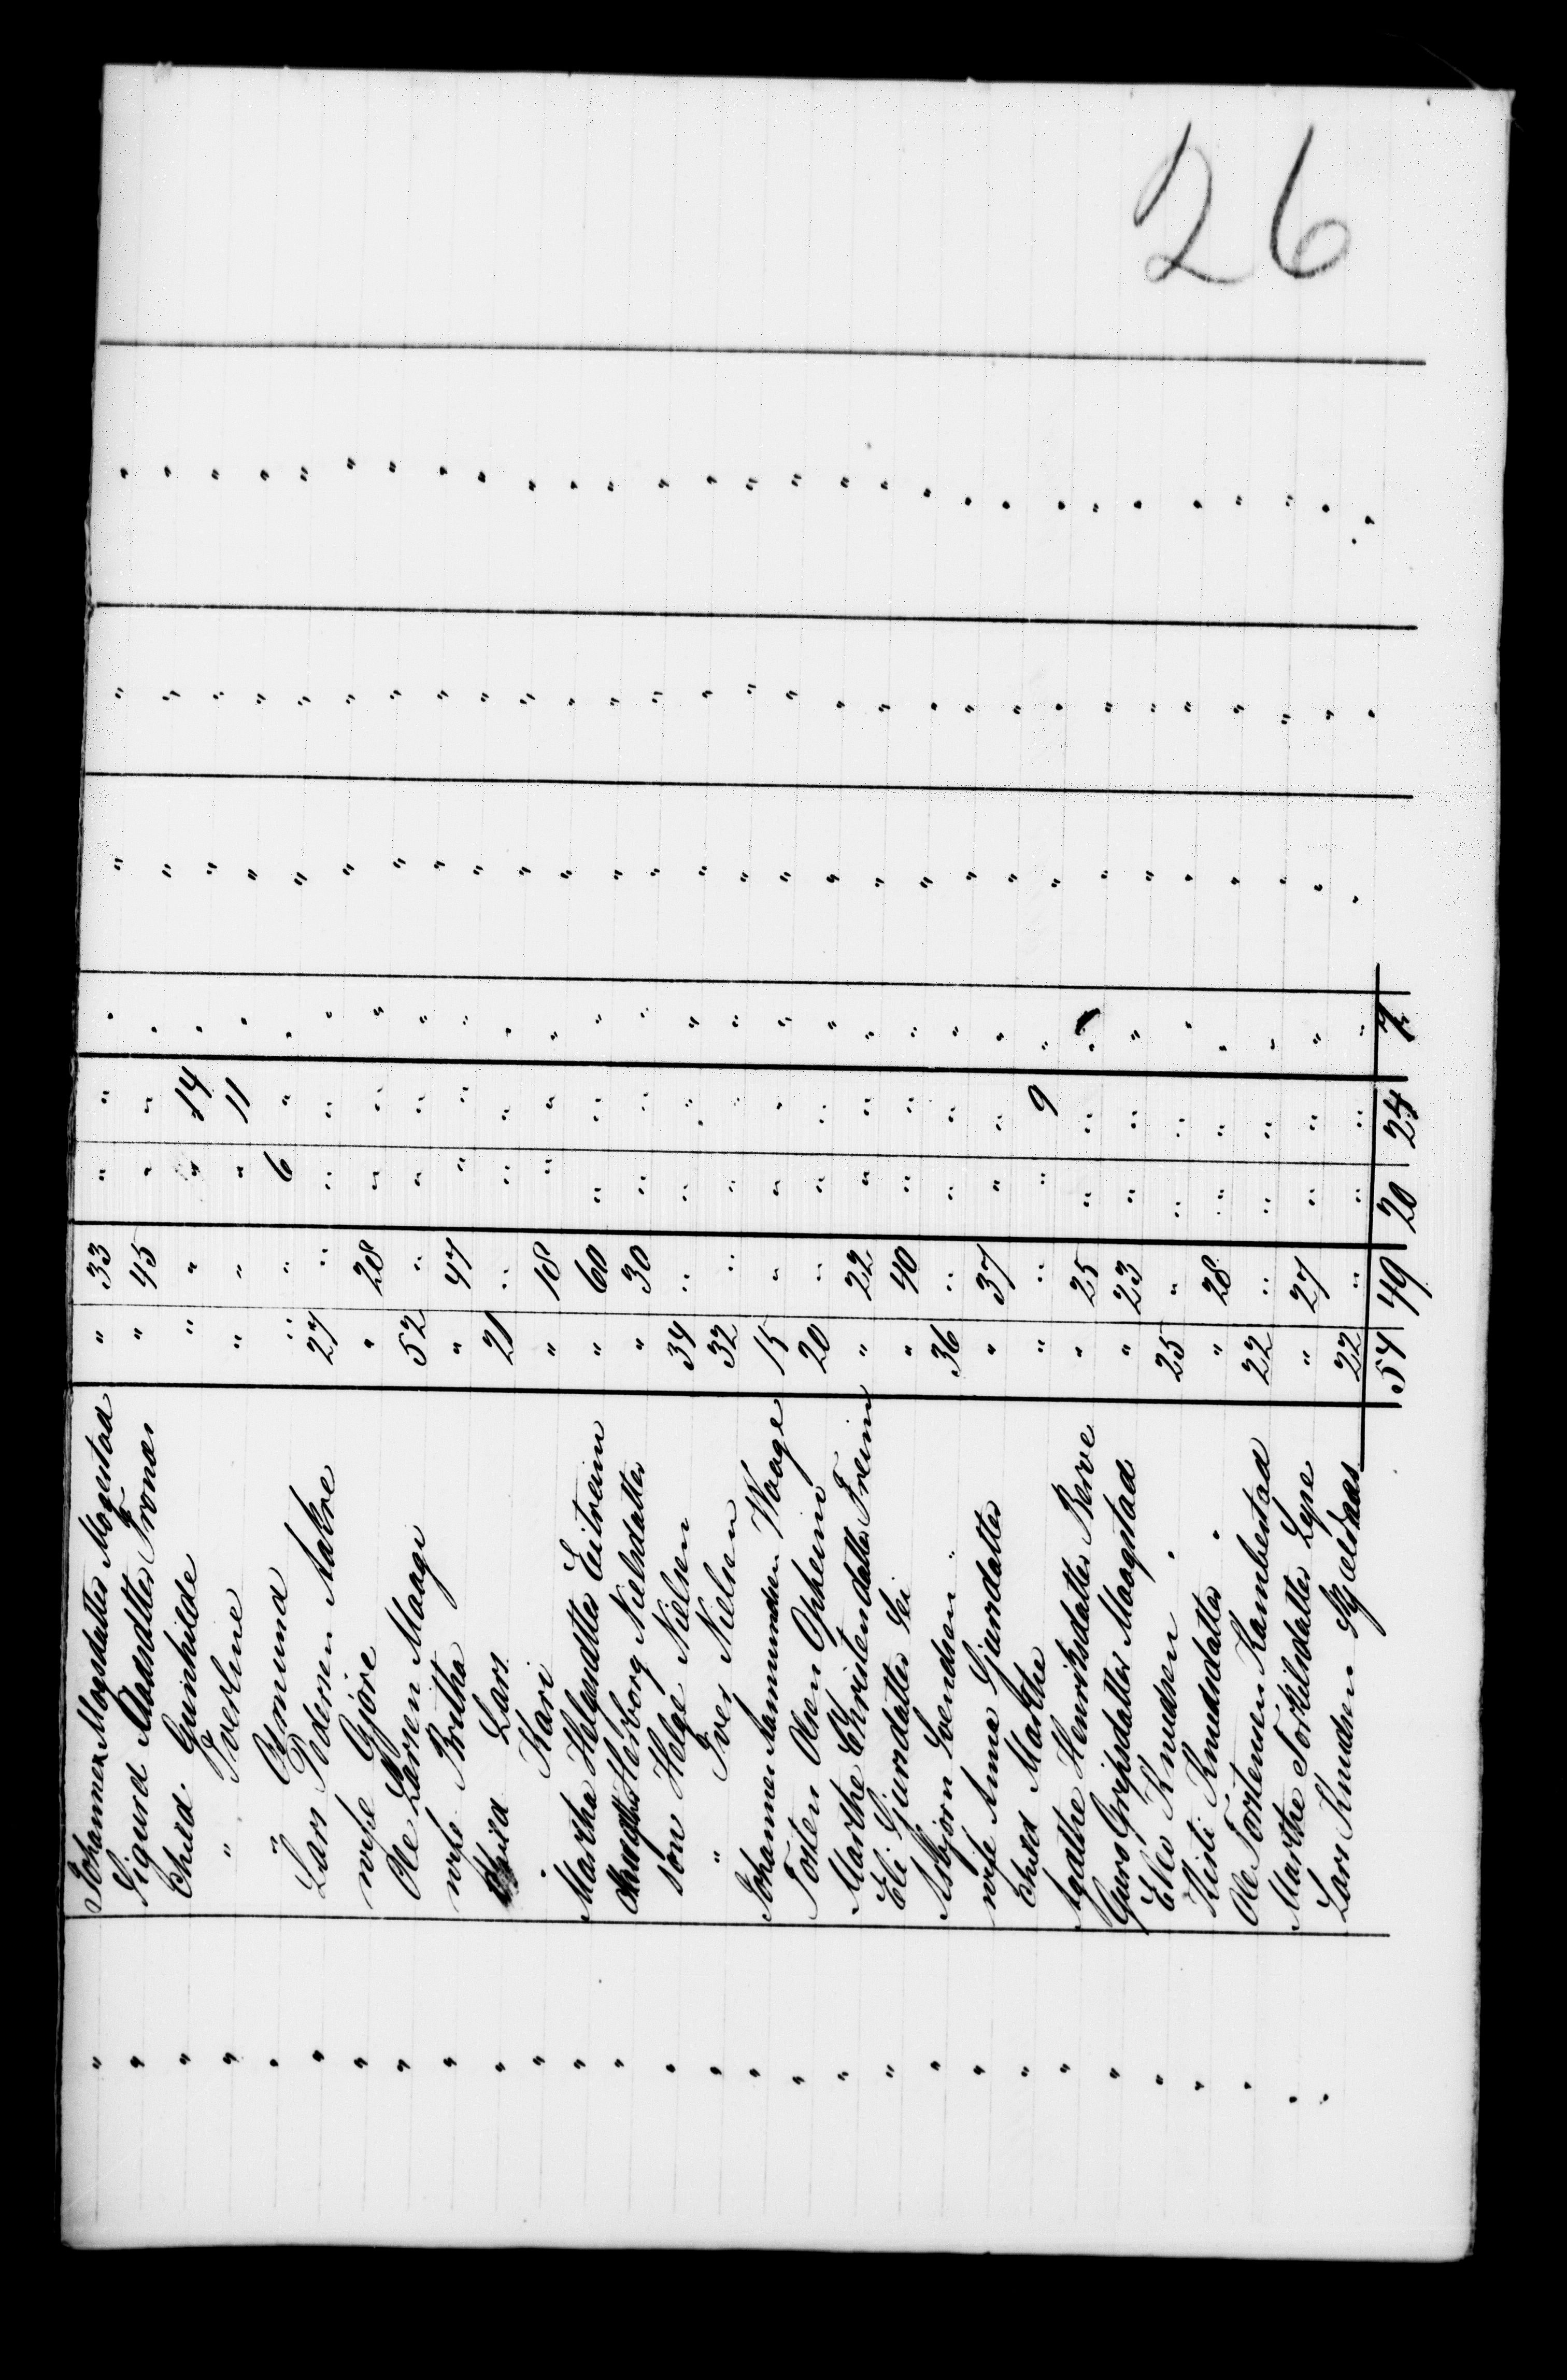 26
" Johannes Mogsdatter Mogestad " 33 " " " " " "
" Sigurd Aadsdatter Tronæs " 45 " " " " " "
" Child Gunhilde " " " 14 " " " "
" " Sverline " " " 11 " " " "
" " Omund " " 6 " " " " "
" Lars Pedersen Aakre 27 " " " " " " "
" wife Gjøre " 28 " " " " " "
" Ole Larsen Maage 52 " " " " " " "
" wife Britha " 47 " " " " " "
" Child Lars 21 " " " " " " "
" " Kari " 18 " " " " " "
" Martha Helgesdatter Eitreim " 60 " " " " " "
" Herborg Nielsdatter " 30 " " " " " "
" son Helge Nielsen 34 " " " " " " "
" " Iver Nielsen 32 " " " " " " "
" Johannes Aamundsen Waage 15 " " " " " " "
" Tosten Olsen Opheim 20 " " " " " " "
" Marthe Christendatter Freim " 22 " " " " " "
" Eli Gjursdatter Sei " 40 " " " " " "
" Asbjørn Svendsen " 36 " " " " " " "
" wife Anna Gjursdatter " 37 " " " " " "
" Child Marthe " " " 9 " " " "
" Agathe Henriksdatter Berve " 25 " " " " " "
" Guro Gripsdatter Maagstad " 23 " " " " " "
" Elev Knudsen " 25 " " " " " " "
" Kisti Knudsdatter " " 28 " " " " " "
" Ole Torstensen Kambestad 22 " " " " " " "
" Marthe Torkildsdatter Lyse " 27 " " " " " "
" Lars Knudsen Kjældaas 22 " " " " " " "
54 49 20 24 7